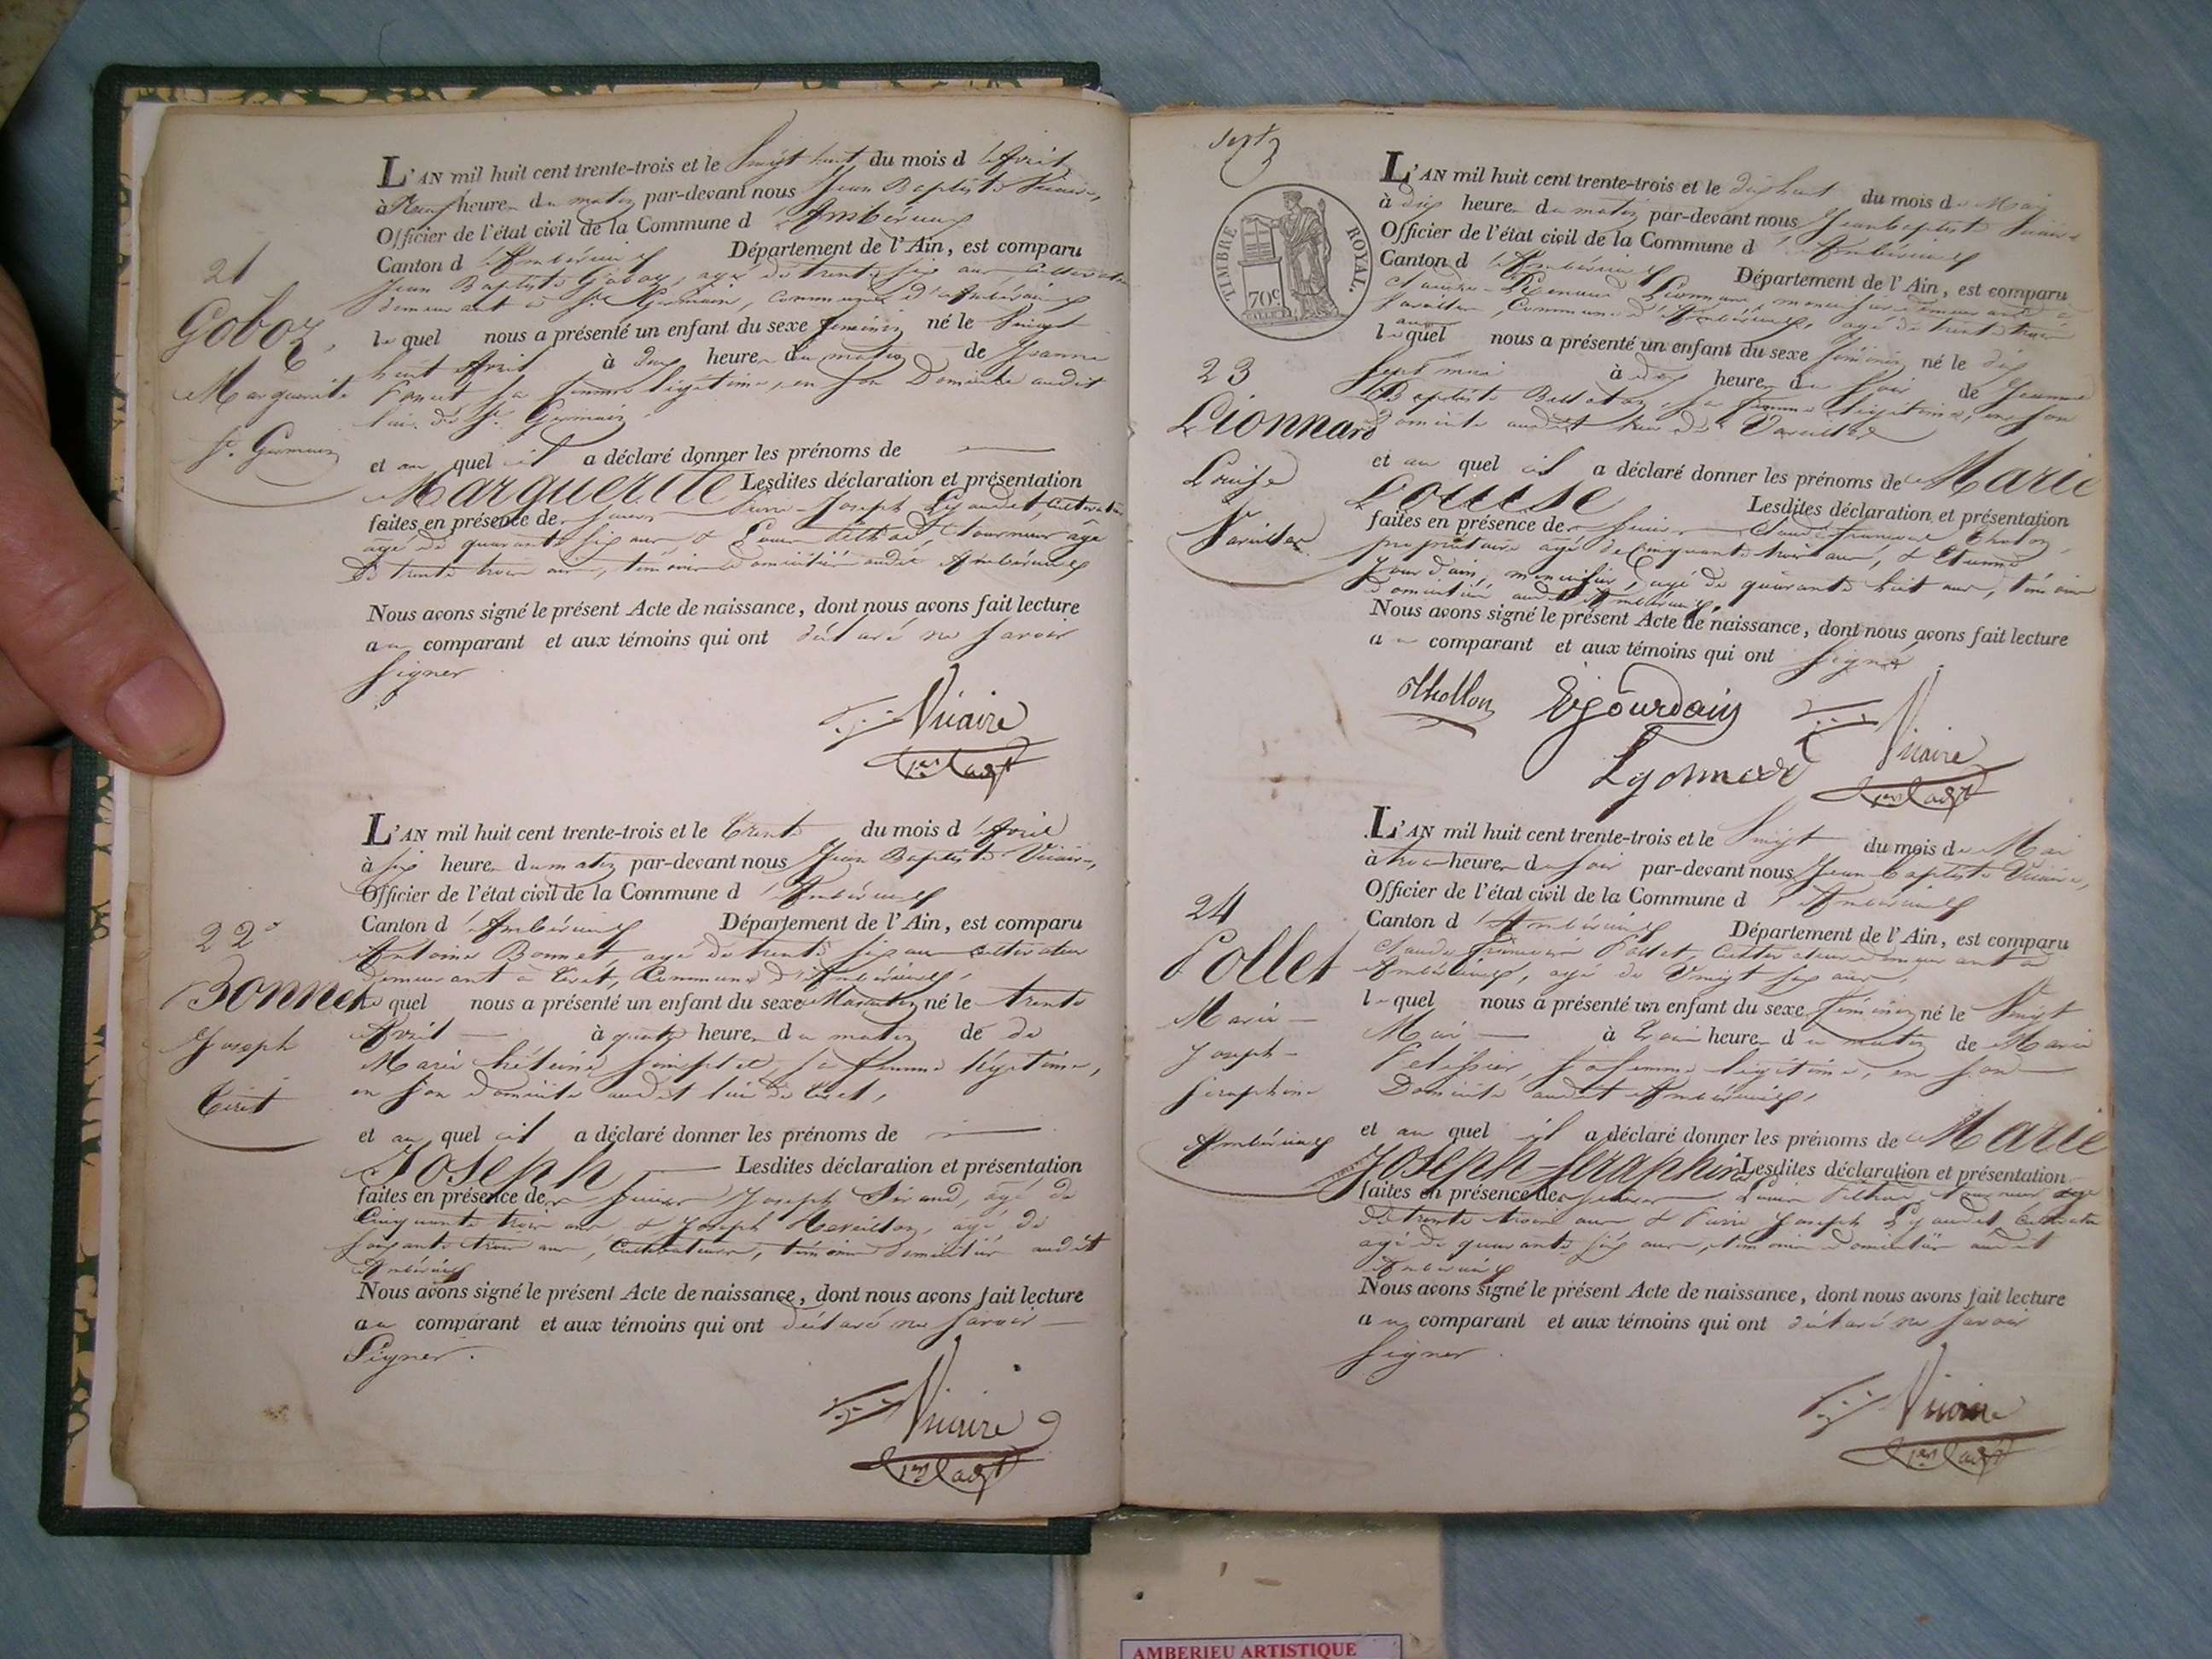 L'AN mil huit cent trente-trois et le Vingt huit du mois d'Avril
à Neuf heures du matin par-devant nous Jean Baptiste Vicaire,
Officier de l'état civil de la Commune d'Ambérieux
Canton d'Ambérieux Département de l'Ain, est comparu
Jean Baptiste Goboz, agé de trente six ans cultivateur
demeurant à St Germain, Commune d'Ambérieux
lequel nous a présenté un enfant du sexe feminin né le Vingt
huit Avril à deux heures du matin de Jeanne
sa femme légitime, en son Domicile audit
lieu de St Germain
et auquel il a déclaré donner les prénoms de
Marguerite Lesdites déclaration et présentation
faites en présence des sieurs Pierre-Joseph Cultivateur
âgé de quarante six ans, & Louis tourneur âgé
de trente trois ans, témoins domiciliés audit Ambérieux
Nous avons signé le présent Acte de naissance, dont nous avons fait lecture
au comparant et aux témoins qui ont déclaré ne savoir
signer
Vicaire
21
Goboz,
Marguerite
St Germain
L'AN mil huit cent trente-trois et le Trente du mois d'Avril
à six heures du matin par-devant nous Jean Baptiste Vicaire,
Officier de l'état civil de la Commune d'Ambérieux
Canton d'Ambérieux Département de l'Ain, est comparu
Antoine Bonnet, agé de trente six ans cultivateur
demeurant à Tiret, Commune d'Ambérieux,
lequel nous a présenté un enfant du sexe Masculin né le trente
Avril à quatre heures du matin de de
Marie sa femme légitime,
en son domicile audit lieu de Tiret,
et auquel il a déclaré donner les prénoms de
Joseph Lesdites déclaration et présentation
faites en présence des sieurs Joseph Sirand, âgé de
Cinquante trois ans & Joseph Reveillon, agé de
soixante trois ans, Cultivateurs, témoins domiciliés audit
Ambérieux
Nous avons signé le présent Acte de naissance, dont nous avons fait lecture
au comparant et aux témoins qui ont déclaré ne savoir
Signer.
Vicaire
22
Bonnet
Joseph
Tiret
Sept
TIMBRE ROYAL.
70c
L'AN mil huit cent trente-trois et le dix huit du mois de Mai
à dix heures du matin par-devant nous Jean Baptiste Vicaire
Officier de l'état civil de la Commune d'Ambérieux
Canton d'Ambérieux Département de l'Ain, est comparu
Claude demeurant à
Vareilles, Commune d'Ambérieux, agé de trente trois
ans
lequel nous a présenté un enfant du sexe féminin né le dix
sept mai à dix heures du soir de Jeanne
Baptiste sa femme légitime, en son
Domicile audit lieu de Vareilles
et auquel il a déclaré donner les prénoms de Marie
Louise Lesdites déclaration et présentation
faites en présence des sieurs Claude François Thollon,
propriétaire âgé de Cinquante trois ans, & Etienne
Jourdain, menuisier, agé de quarante huit ans, témoins
domiciliés audit Ambérieux,
Nous avons signé le présent Acte de naissance, dont nous avons fait lecture
au comparant et aux témoins qui ont signé
Thollon Ejourdain Vicaire
Lyonnard
23
Lionnard
Louise
Vareilles
L'AN mil huit cent trente-trois et le Vingt du mois de Mai
à trois heures du soir par-devant nous Jean Baptiste Vicaire,
Officier de l'état civil de la Commune d'Ambérieux
Canton d'Ambérieux Département de l'Ain, est comparu
Claude François Pollet, Cultivateur demeurant à
Ambérieux, agé de Vingt six ans,
lequel nous a présenté un enfant du sexe féminin né le Vingt
Mai à trois heures du matin de Marie
Pelissier, sa femme légitime, en son
Domicile audit Ambérieux,
et auquel il a déclaré donner les prénoms de Marie
Joseph-Seraphine Lesdites déclaration et présentation
faites en présence des sieurs Louis tourneur agé
de trente trois ans & Pierre Joseph Cultivateur
agé de quarante six ans, témoins domiciliés audit
Ambérieux
Nous avons signé le présent Acte de naissance, dont nous avons fait lecture
au comparant et aux témoins qui ont déclaré ne savoir
signer.
Vicaire
24
Pollet
Marie
Joseph
Seraphine
Ambérieux
AMBERIEU ARTISTIQUE